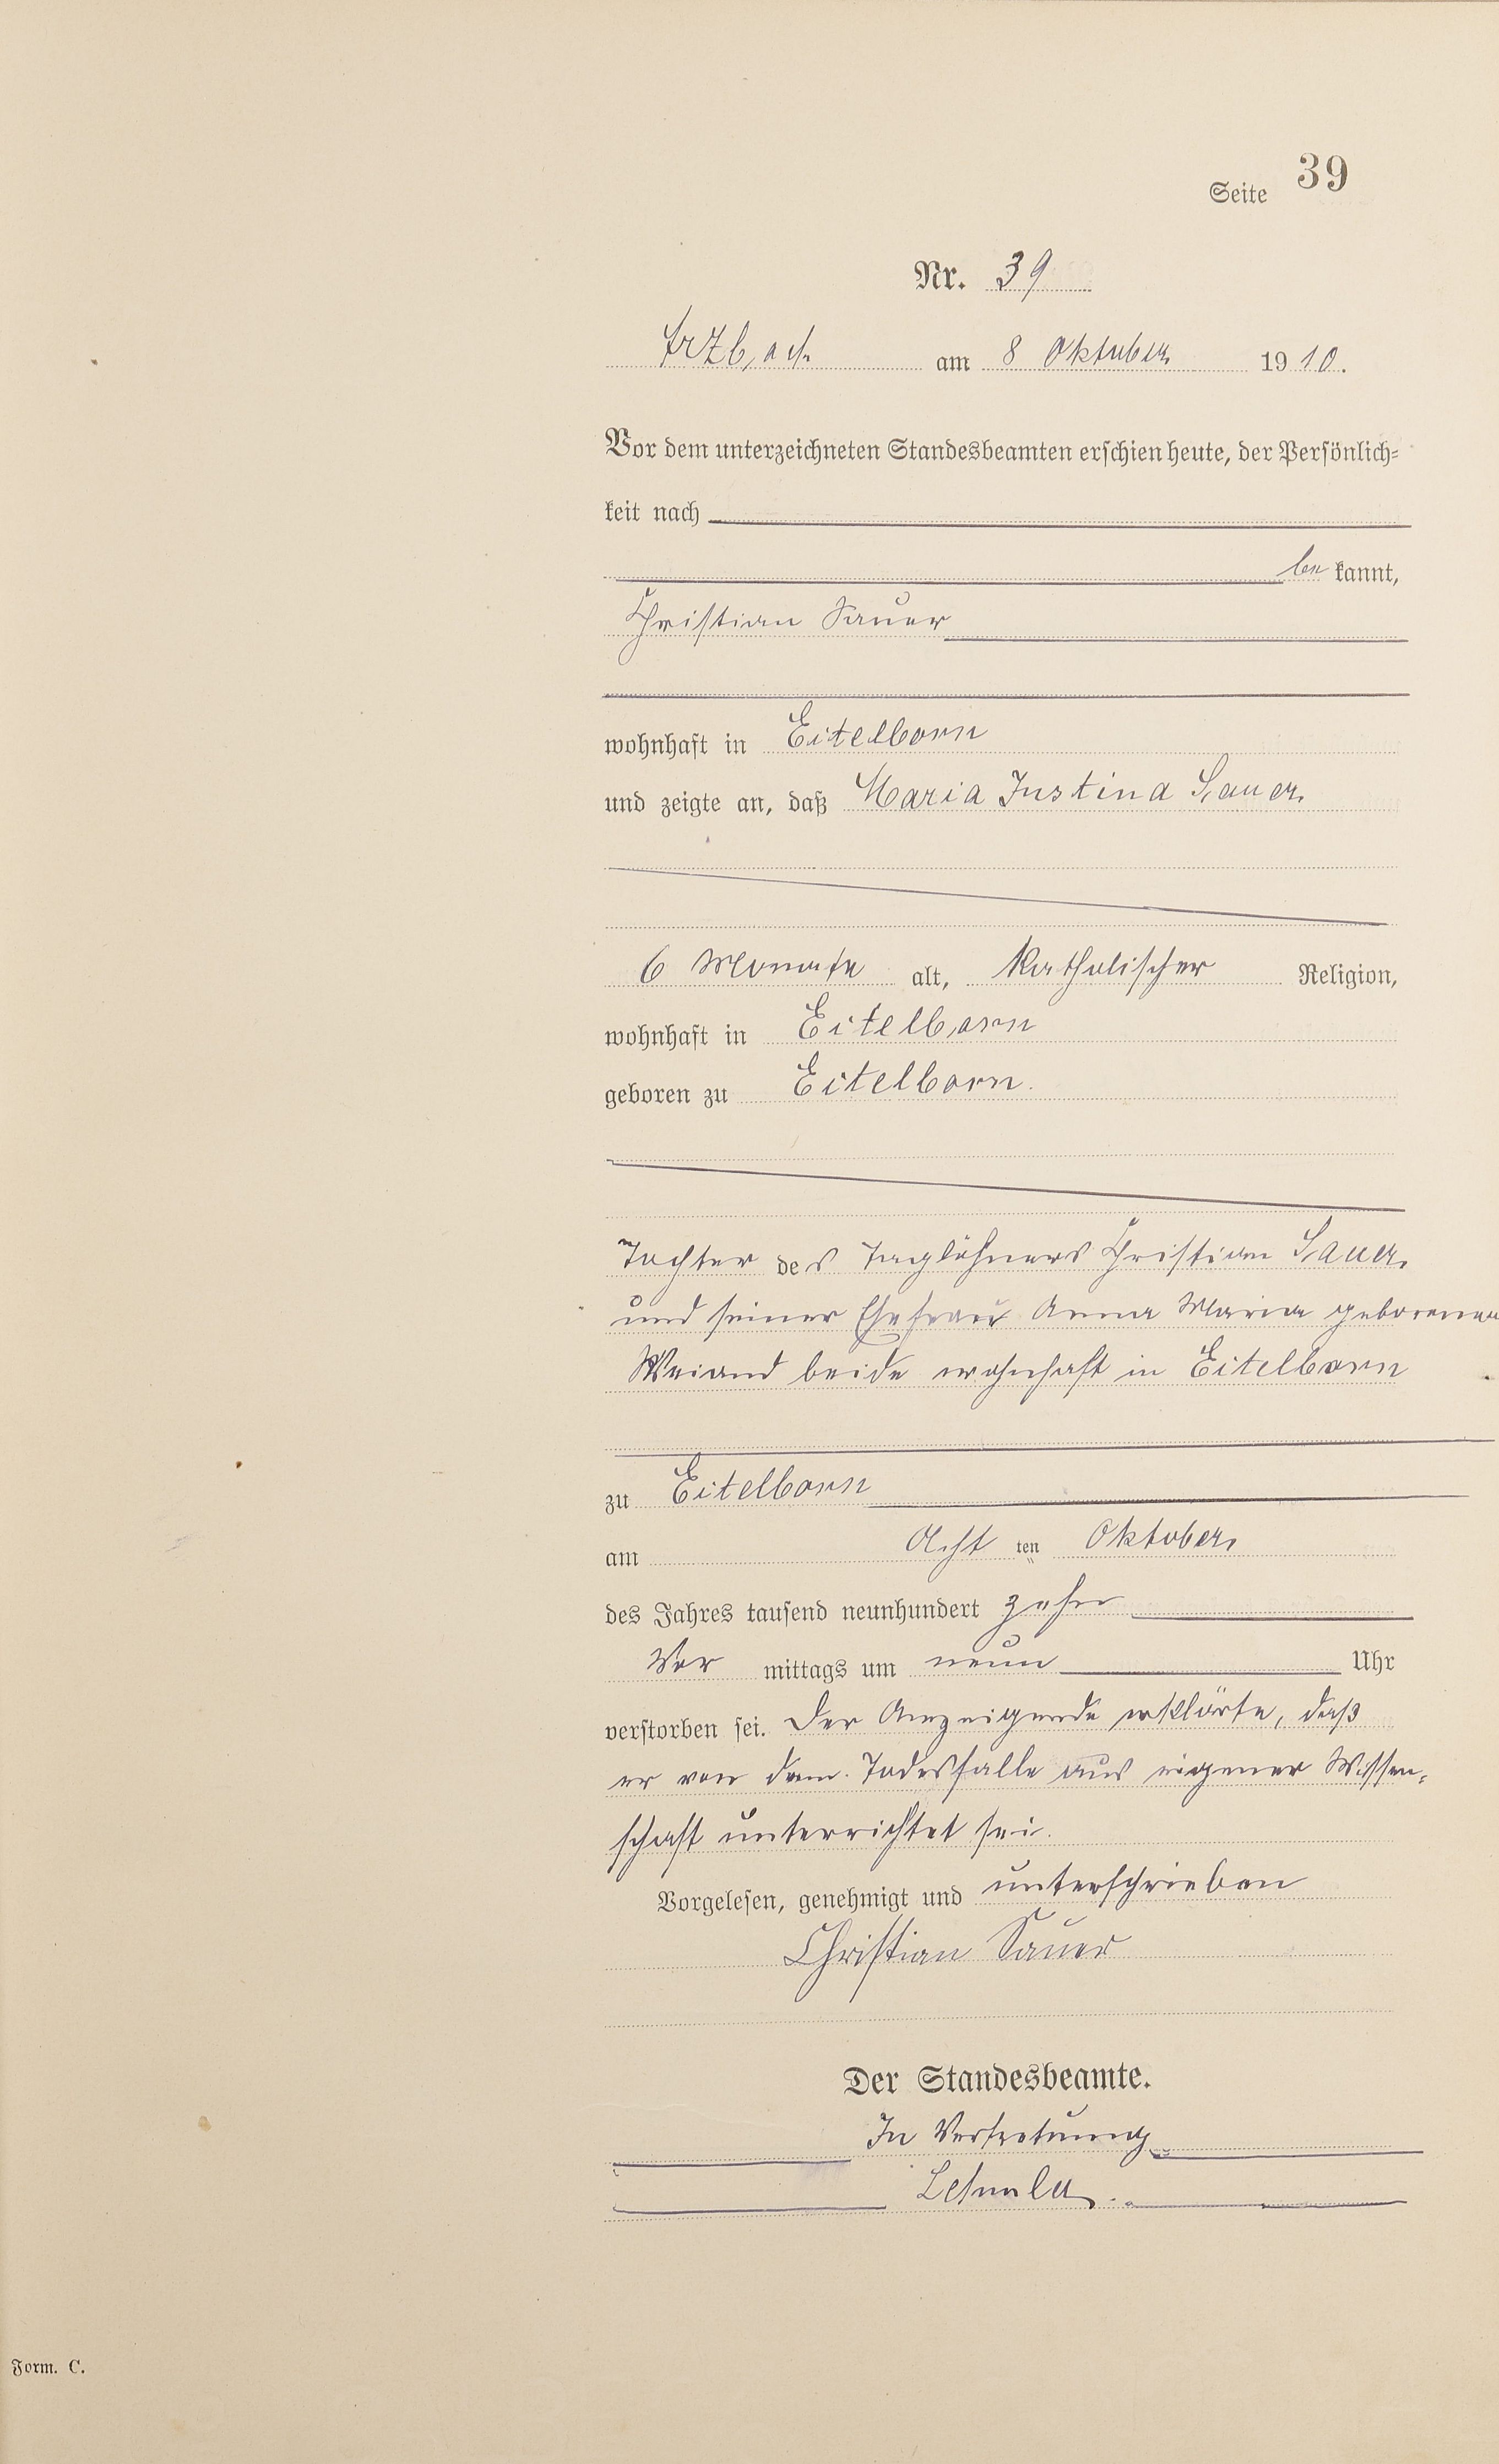 Seite 39
Nr. 39
Arzbach am 8 Oktober 1910.
Vor dem unterzeichneten Standesbeamten erschien heute, der Persönlich=
keit nach
be kannt,
Christian Sauer
wohnhaft in Eitelborn
und zeigte an, daß Maria Justina Sauer
6 Monate alt, katholischer Religion,
wohnhaft in Eitelborn
geboren zu Eitelborn.
Tochter des Taglöhners Christian Sauer
und seiner Ehefrau Anna Maria geborenen
Weiand beide wohnhaft in Eitelborn
zu Eitelborn
am Acht ten Oktober
des Jahres tausend neunhundert zehn
Vor mittags um neun Uhr
verstorben sei. Der Anzeigende erklärte, daß
er von dem Todesfalle aus eigener Wissen=
schaft unterrichtet sei.
Vorgelesen, genehmigt und unterschrieben
Christian Sauer
Der Standesbeamte.
In Vertretung
Form. C.